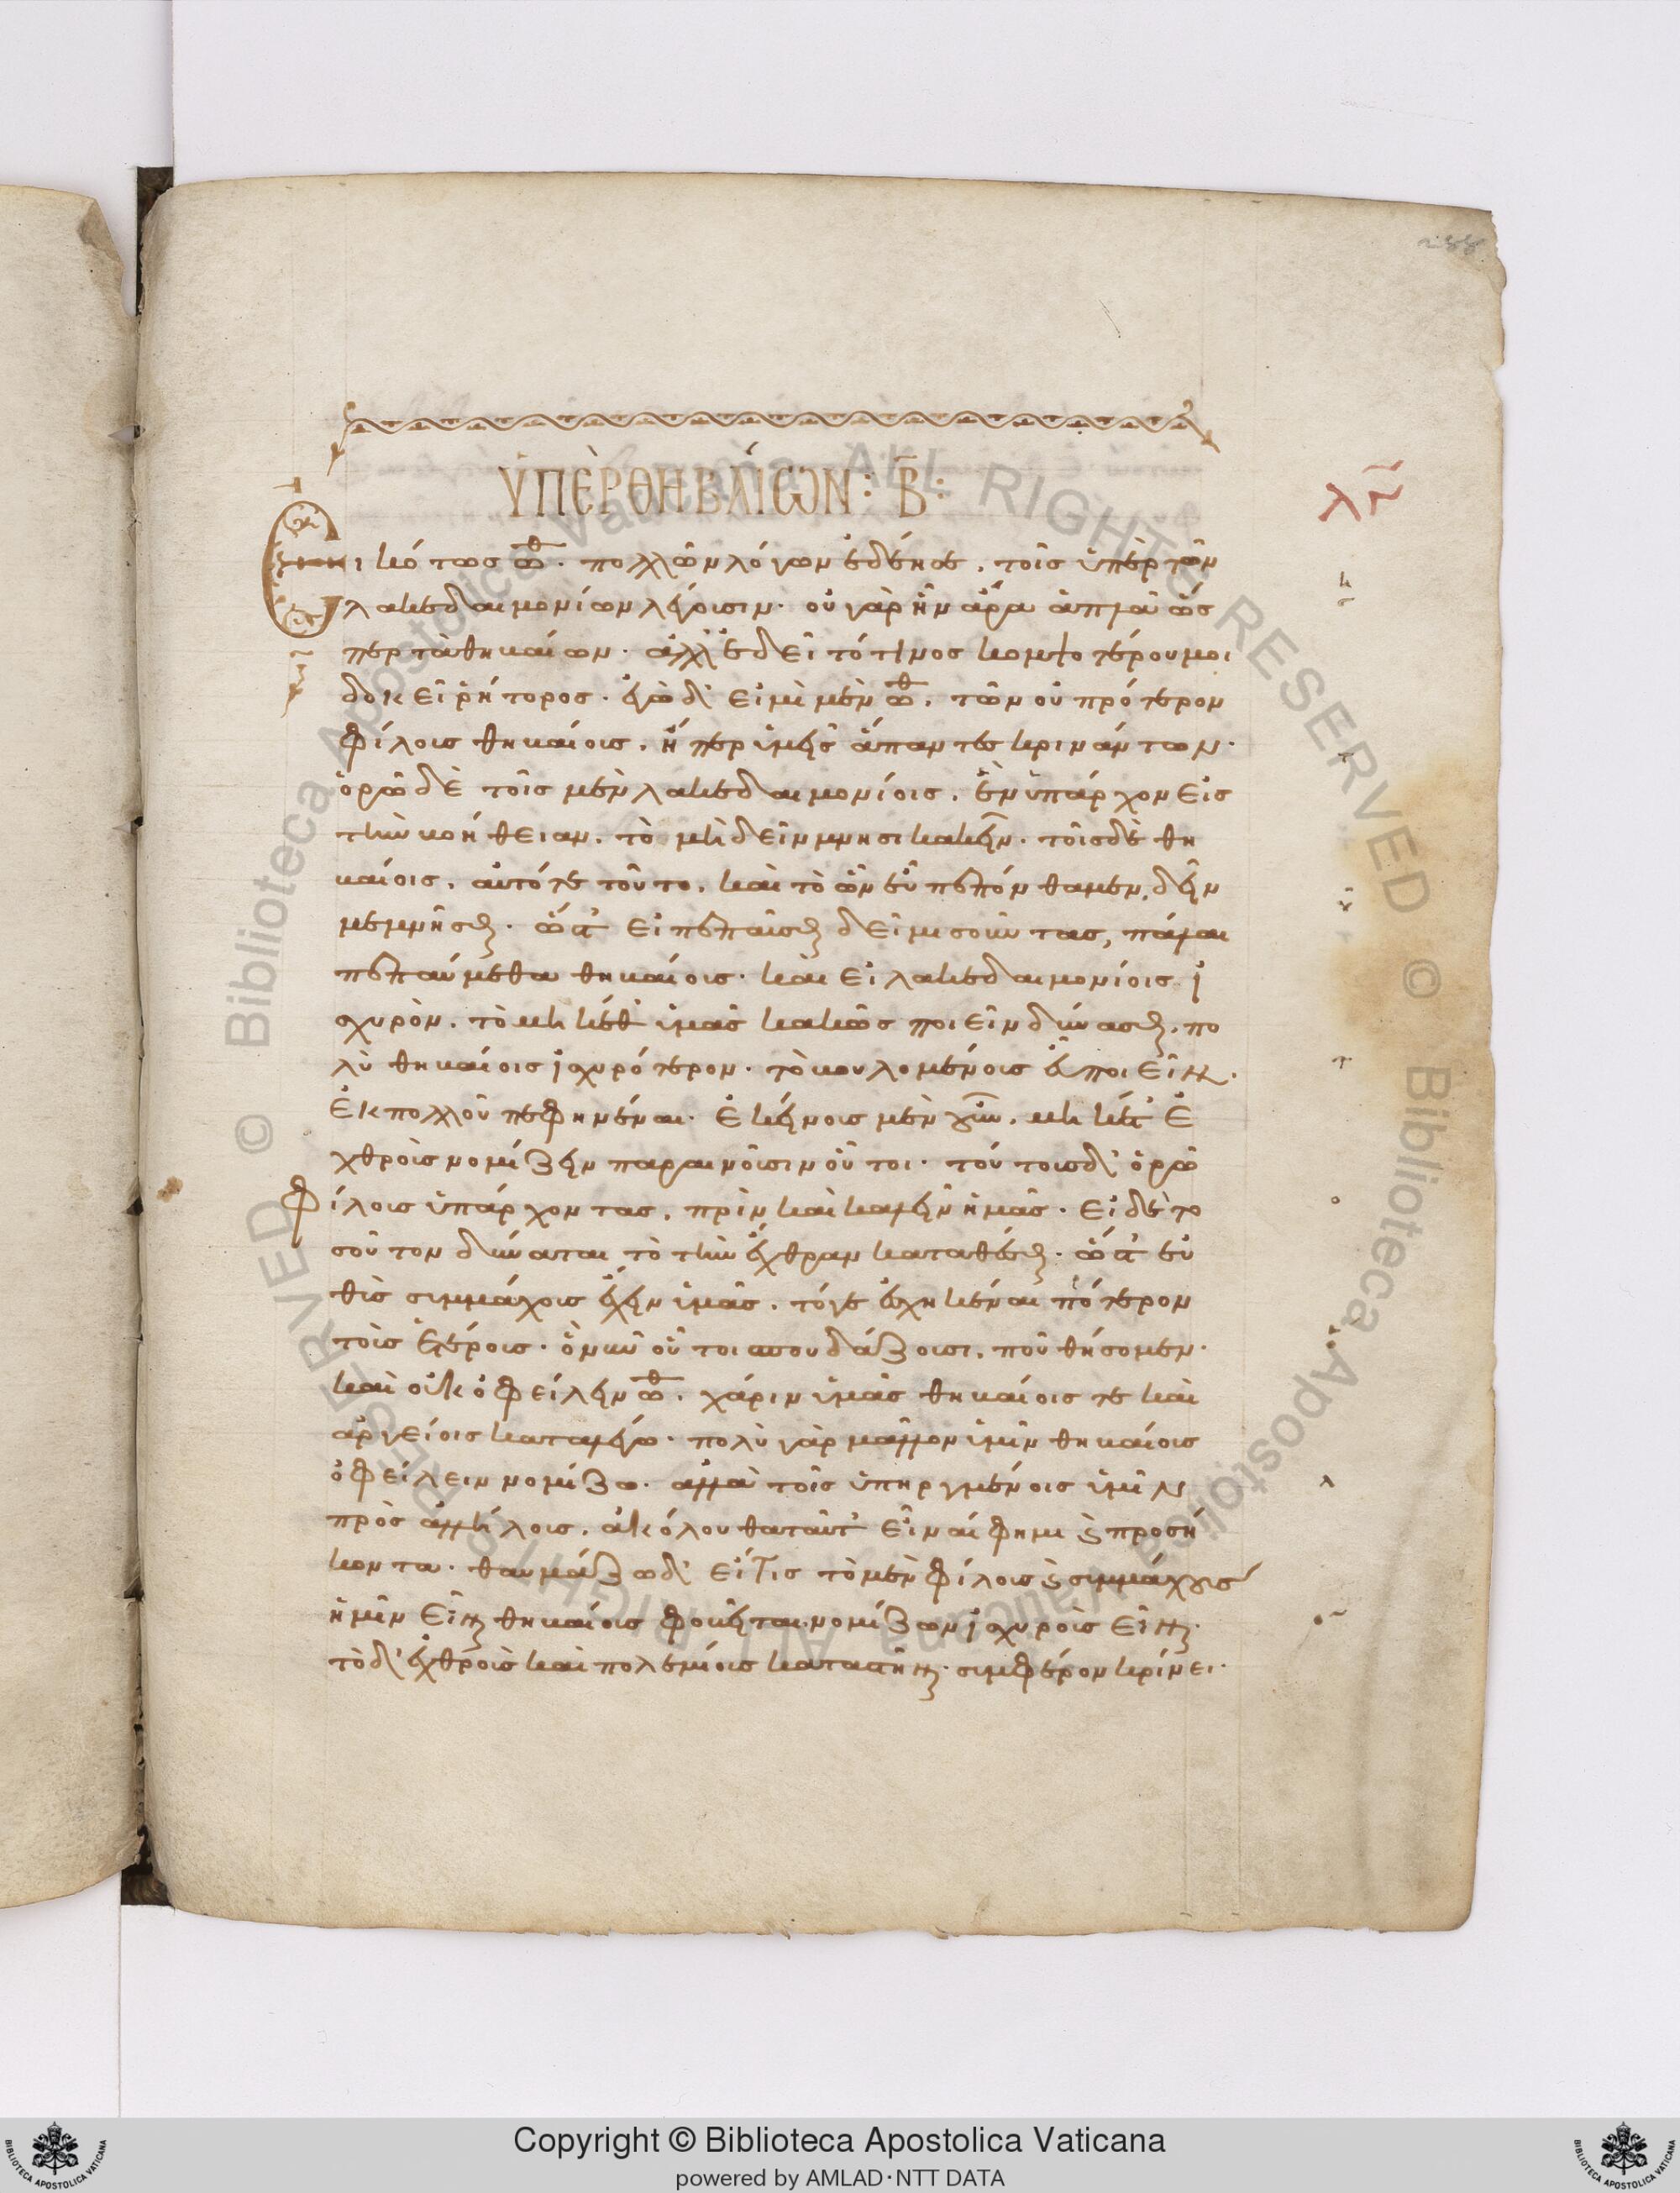 ὙΠῈΡ ΘΗΒΑΊΩΝ : Β̅ :
λη
Εἰκότως ω̅θ̅. πολλῶν λόγων ἐδέησε, τοῖς ὑπὲρ τῶν
λακεδαιμονίων λέγουσιν. οὐ γὰρ ἦν ἄρα ἁπλᾶ ὥς
περ τὰ θηβαίων. ἀλλ' ἔδει τό τινος κομψοτέρου μοι
δοκεῖ ῥήτορος. ἐγὼ δ' εἰμὶ μὲν ω̅θ̅. τῶν οὐ πρότερον
φίλοις θηβαίοις, ἤπερ ὑμεῖς ἅπαντες κρινάντων.
ὁρῶ δὲ τοῖς μὲν λακεδαιμονίοις, ἓν ὑπάρχον εἰς
τὴν βοήθειαν, τὸ μὴ δεῖν μνησικακεῖν. τοῖς δὲ θη
βαίοις, αὐτό τε τοῦτο, καὶ τὸ ὧν εὖ πεπόνθαμεν, δεῖν
μεμνῆσθαι. ὥστ' εἰ πεπαῦσθαι δεῖ μισοῦντας, πάλαι
πεπαύμεθα θηβαίοις. καὶ εἰ λακεδαιμονίοις ἰ
σχυρὸν, τὸ μὴ κέθ' ὑμᾶς κακῶς ποιεῖν δύνασθαι, πο
λὺ θηβαίοις ἰσχυρότερον. τὸ βουλομένοις εὖ ποιεῖν.
ἐκ πολλοῦ πεφηνέναι. ἐκείνοις μὲν οὖν, μὴ κέτ' ἐ
χθροὺς νομίζειν παραινοῦσιν οὗτοι. τούτοις δ' ὁρῶ
φίλους ὑπάρχοντας, πρὶν καὶ καλεῖν ἡμᾶς. εἰ δὲ το
σοῦτον δύναται τὸ τὴν ἔχθραν καταθέσθαι. ὥστ' εὐ
θὺς συμμάχους ἔχειν ὑμᾶς, τό γε ἐσχηκέναι πρότερον
τοὺς ἑτέρους. ὃ νῦν οὗτοι σπουδάζουσι, ποῦ θήσομεν.
καὶ οὐκ ὀφείλειν ω̅θ̅. χάριν ὑμᾶς θηβαίοις τε καὶ
ἀργείοις καταλέγω. πολὺ γὰρ μᾶλλον ὑμῖν θηβαίους
ὀφείλειν νομίζω. ἀλλὰ τοῖς ὑπηργμένοις ὑμῖν
πρὸς ἀλλήλους, ἀκόλουθα ταῦτ' εἶναί φημι καὶ προσή
κοντα. θαυμάζω δ' εἴ τις τὸ μὲν φίλους καὶ συμμάχους
ἡμῖν εἶναι θηβαίους φοβεῖται νομίζων ἰσχυροὺς εἶναι.
τὸ δ' ἐχθροὺς καὶ πολεμίους καταστῆναι. συμφέρον κρίνει.
Copyright © Biblioteca Apostolica Vaticana
powered by AMLAD·NTT DATA